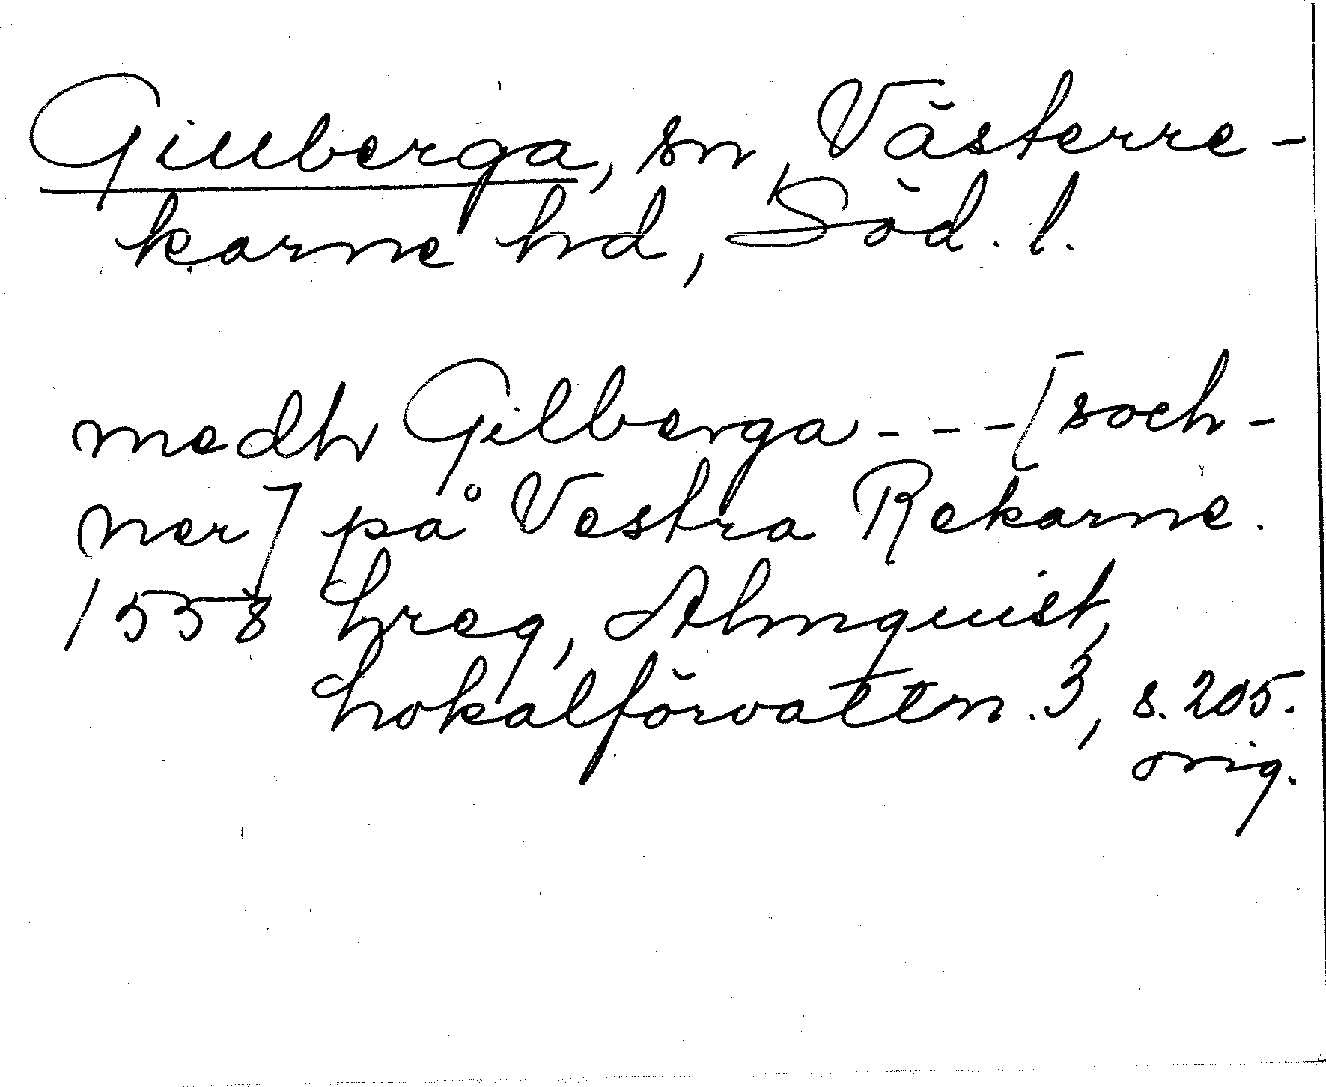 Gillberga, sn, Västerre-
karne hd, Söd. l.
medh Gilberga - - - [soch-
ner] på Vestra Rekarne.
1558 hreg, Almquist,
Lokalförvaltn. 3, s. 205.
orig.